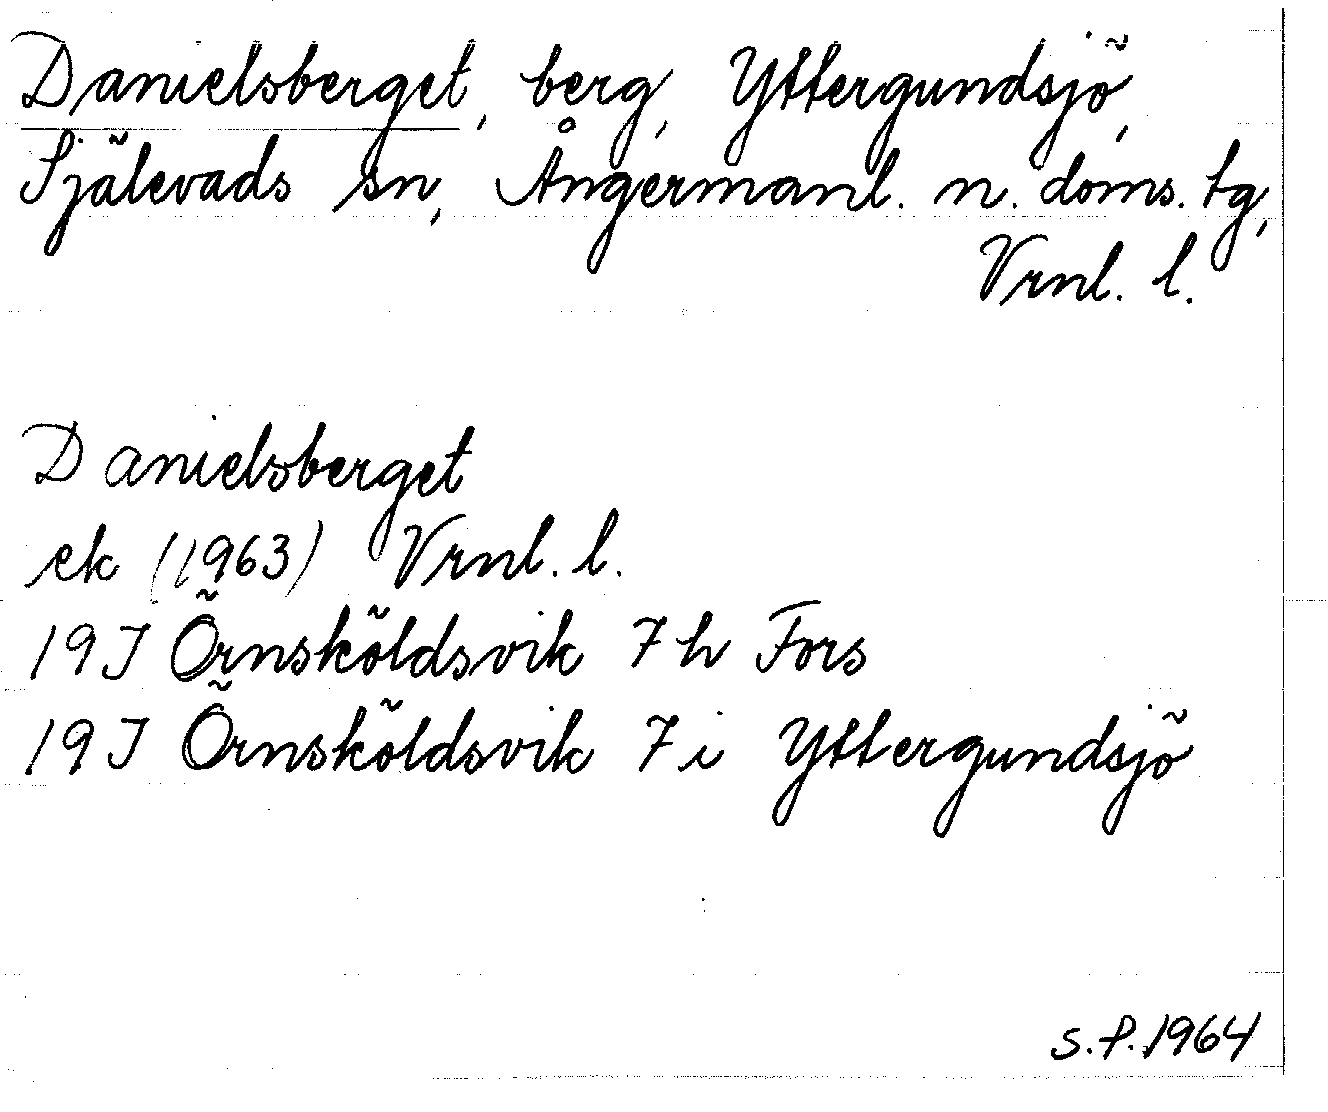 Danielsberget, berg, Yttergundsjö,
Själevads sn, Ångermanl. n. doms. tg,
Vrnl. l.
Danielsberget
ek (1963) Vrnl. l.
19J Örnsköldsvik 7h Fors
19J Örnsköldsvik 7i Yttergundsjö
S.P. 1964